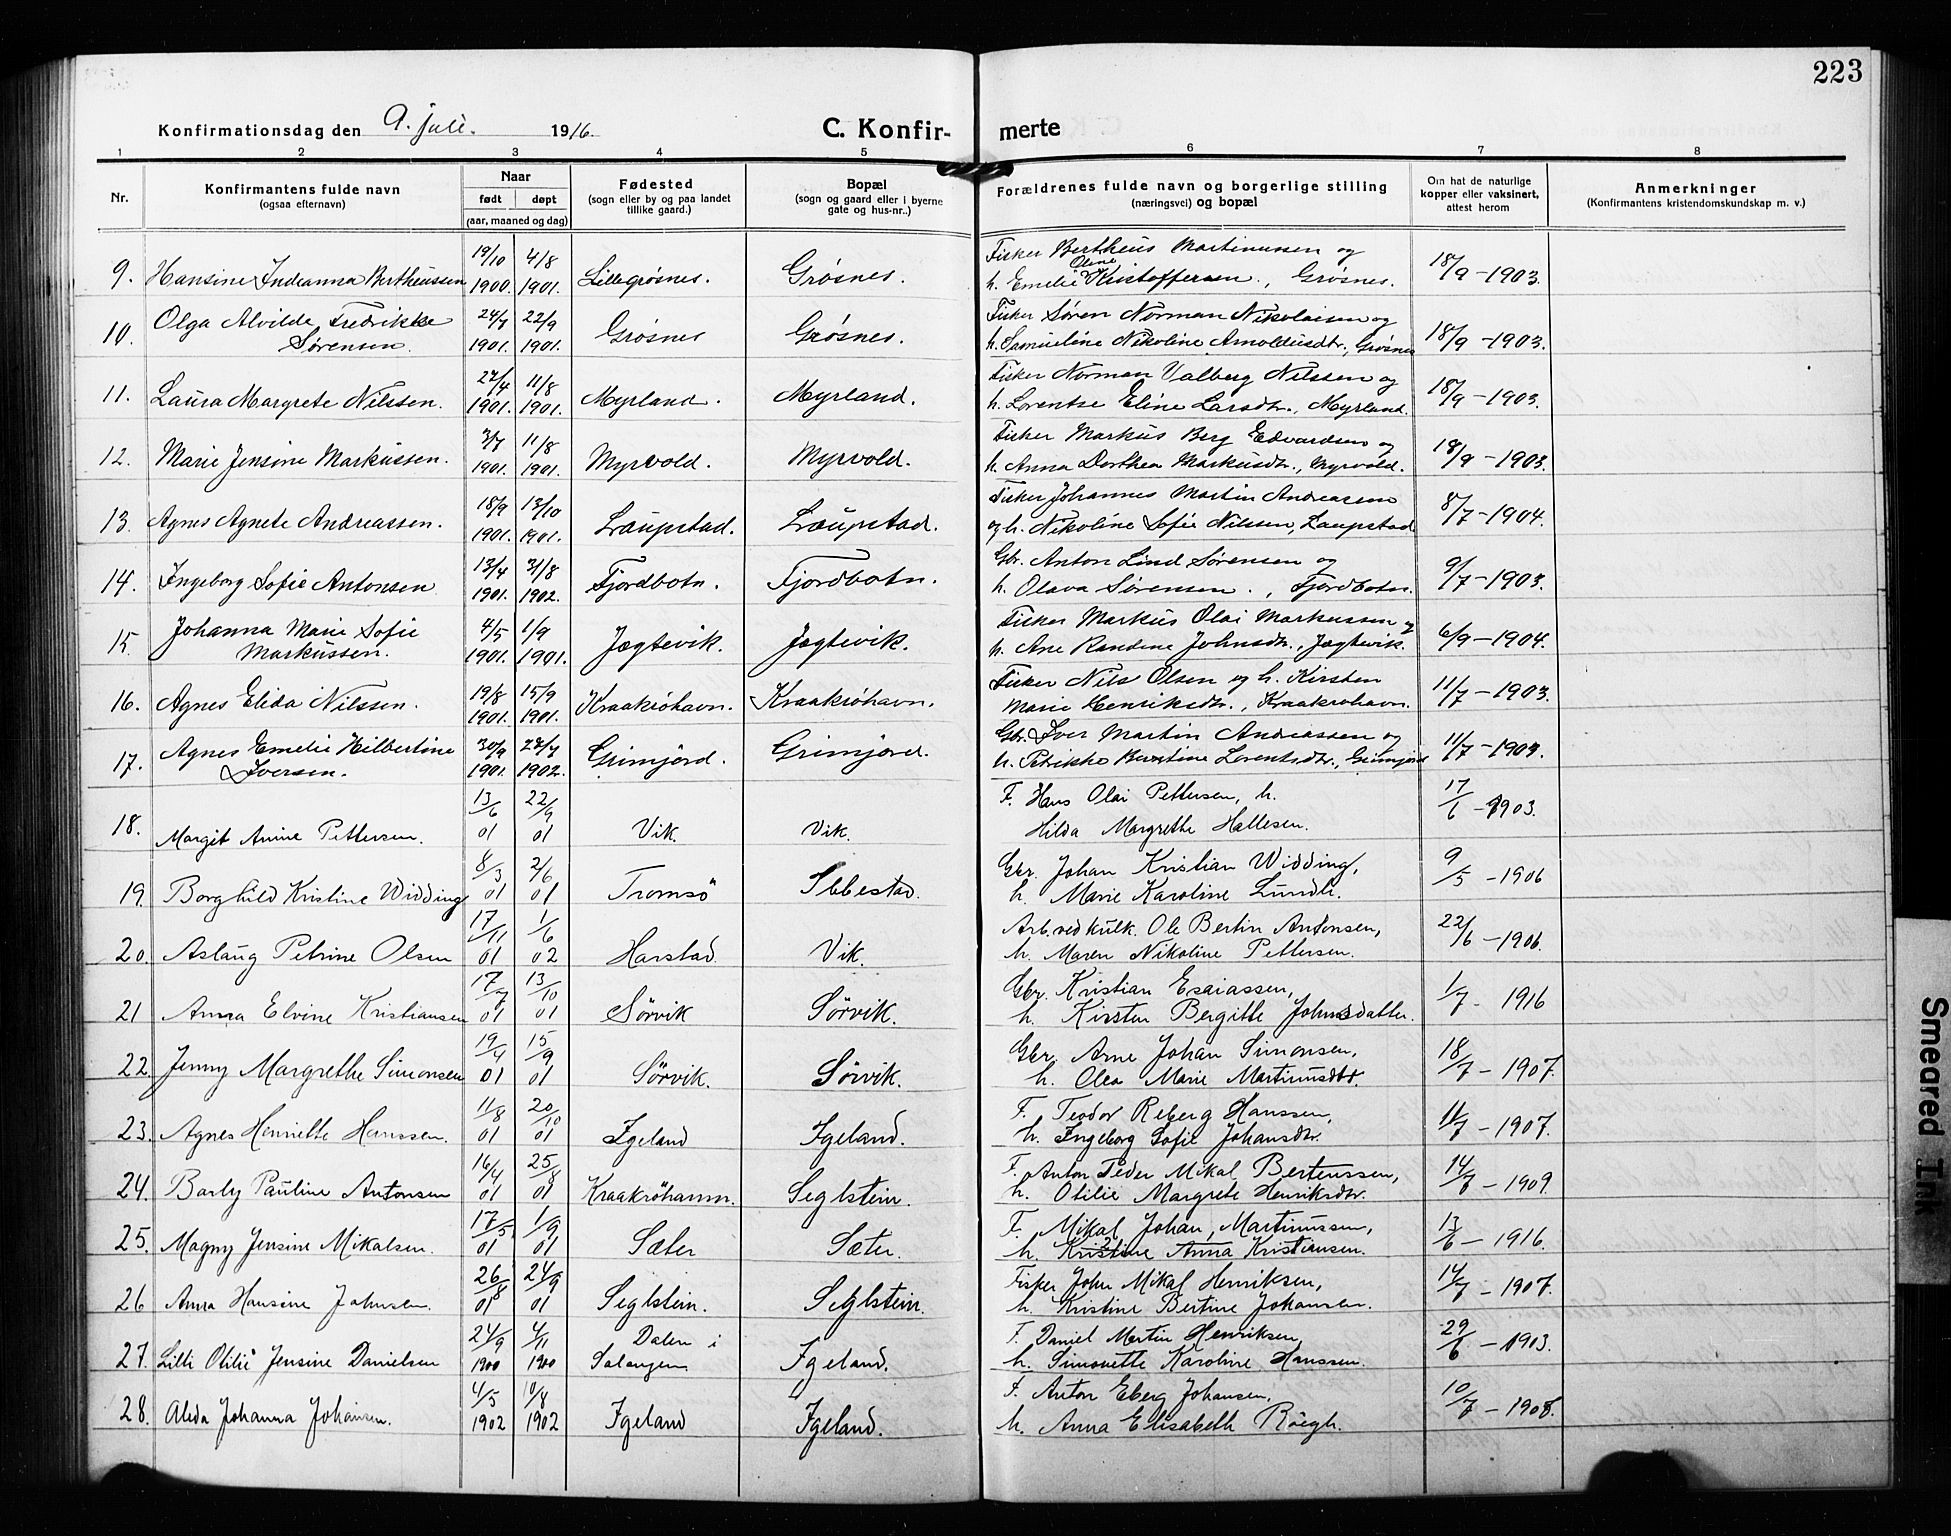 223
Konfirmationsdag den 9. juli. 1916.
C. Konfirmerte
1 2 3 4 5 6 7 8
Nr.
Konfirmantens fulde navn
(ogsaa efternavn)
Naar
født døpt
(aar, maaned og dag)
Fødested
(sogn eller by og paa landet
tillike gaard.)
Bopæl
(sogn og gaard eller i byerne
gate og hus-nr..)
Forældrenes fulde navn og borgerlige stilling
(næringsvei) og bopæl
Om hat de naturlige
kopper eller vaksinert,
attest herom
Anmerkninger
(Konfirmantens kristendomskundskap m. v.)
9. Hansine Indianna Bertheussen 19/10 1900. 4/8 1901. Lillegrøsnes. Grøsnes. Fisker Bertheus Martinussen og
h. Emelie Oline Kristoffersen., Grøsnes. 18/9-1903.
10. Olga Alvilde Fredrikke
Sørensen. 24/7 1901. 22/9 1901. Grøsnes Grøsnes. Fisker Søren Norman Nikolaisen og
h. Samueline Nikoline Arnoldusdtr., Grøsnes 18/9-1903.
11. Laura Margrete Nilssen. 1901. 11/8 1901. Myrland. Myrland. Fisker Norman Valberg Nilssen og
h. Lorentse Eline Larsdtr., Myrland. 18/9-1903.
12. Marie Jensine Markussen. 3/7 1901. 11/8 1901. Myrvold. Myrvold. Fisker Markus Berg Edvardsen og
h. Anna Dorthea Markusdtr., Myrvold. 18/9-1903.
13. Agnes Agnete Andreassen. 18/9 1901. 13/10 1901. Laupstad. Laupstad. Fisker Johannes Martin Andreassen
og h. Nikoline Sofie Nilssen, Laupstad 8/7-1904.
14. Ingeborg Sofie Antonsen 13/4 1901. 31/8 1902. Fjordbotn. Fjordbotn. Gbr. Anton Lind Sørensen og
h. Olava Sørensen., Fjordbotn. 9/7-1903.
15. Johanna Marie Sofie
Markussen. 4/5 1901. 1/9 1901. Jægtevik. Jægtevik. Fisker Markus Olai Markussen og
h. Ane Randine Johnsdtr., Jægtevik. 6/9-1904.
16. Agnes Elida Nilssen. 19/8 1901. 15/9 1901. Kraakrøhavn. Kraakrøhavn. Fisker Nils Olsen og h. Kirsten
Marie Henriksdtr., Kraakrøhavn. 11/7-1903.
17. Agnes Emelie Hilbertine
Iversen. 30/9 1901. 1902. Grimjord. Grimjord. Gbr. Iver Martin Andreassen og
h. Petrikke Lorentsdtr., Grimjord 11/7-1903.
18. Margit Anine Pettersen. 13/6 01 22/9 01 Vik. Vik. F. Hans Olai Pettersen, h.
Hilda Margrethe Hallesen. 17/6-1903.
19. Borghild Kristine Widding 8/3 01 2/6 01 Tromsö Sibbestad. Gbr. Johan Kristian Widding,
h. Marie Karoline Lundli. 9/5-1906
20. Aslaug Petrine Olsen 17/11 01 1/6 02 Harstad. Vik. Arb. ved kulk. Ole Bertin Antonsen,
h. Maren Nikoline Pettersen. 22/6-1906.
21 Anna Elvine Kristiansen 17/7 01 13/10 01 Sörvik Sörvik. Gbr. Kristian Esaiassen,
h. Kirsten Bergitte Johnsdatter. 1/7-1916
22. Jenny Margrethe Simonsen 19/4 01 15/9 01 Sörvik. Sörvik. Gbr. Arne Johan Simonsen,
h. Olea Marie Martinusdtr. 18/7-1907.
23. Agnes Henriette Hanssen. 11/8 01 20/10 01 Igeland Igeland. F. Teodor Reberg Hanssen,
h. Ingeborg Sofie Johansdtr. 11/7-1907.
24. Barly Pauline Antonsen 16/4 01 25/8 01 Kraakröhamn. Seglstein. F. Anton Peder Mikal Berteussen,
h. Otilie Margrete Henriksdtr. 14/8-1909.
25. Magny Jensine Mikalsen. 17/5 01 1/9 01 Sæter Sæter. F. Mikal Johan Martinussen,
h. Kristine Anna Kristiansen. 13/6-1916.
26 Anna Hansine Johnsen. 26/8 01 24/9 01 Seglstein. Seglstein. Fisker John Mikal Henriksen,
h. Kristine Bertine Johansen. 14/7-1907.
27. Lilli Otilie Jensine Danielsen 24/9 1900 4/11 1900 Dalen i
Salangen Igeland. F. Daniel Martin Henriksen,
h. Simonette Karoline Hanssen. 29/6-1913.
28. Alida Johanna Johansen. 4/5 1902 10/8 1902 Igeland Igeland. F. Anton Eberg Johansen,
h. Anna Elisabeth Röegh. 10/7-1908.
Smeared Ink